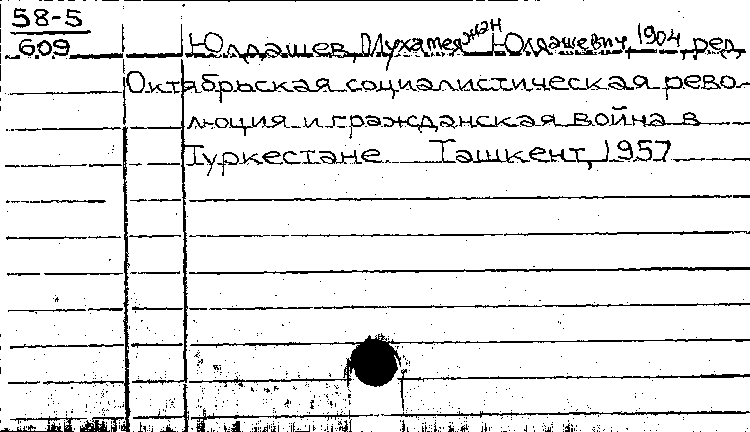 58-5
609
Юлдашев, Мухамеджан Юлдашевич, 1904, ред.
Октябрьская социалистическая рево-
люция и гражданская война в
Туркестане. Ташкент, 1957